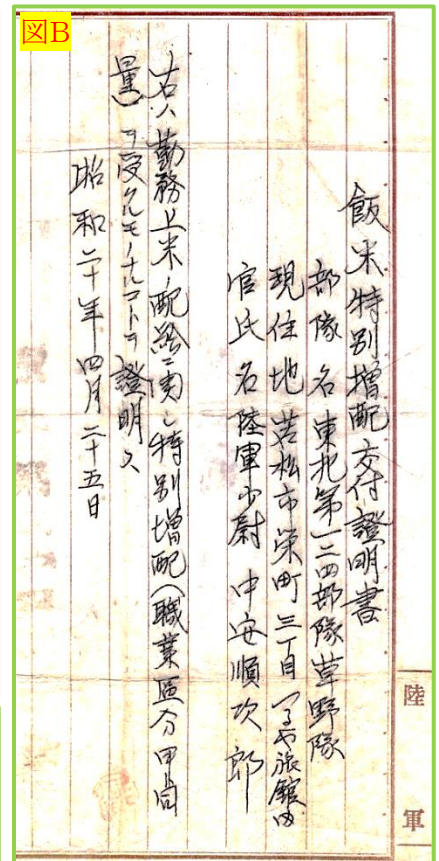 図B
飯米特別増配交付證明書
部隊名東北第一二四部隊草野隊
現住地 若松市栄町三丁目 つるや旅館内
官氏名陸軍少尉 中安順次郎
右ハ勤務上米ノ配給ニ関シ特別増配(職業区分甲同
量)ヲ受クルモノナルコトヲ證明ス
昭和二十年四月二十五日
陸軍